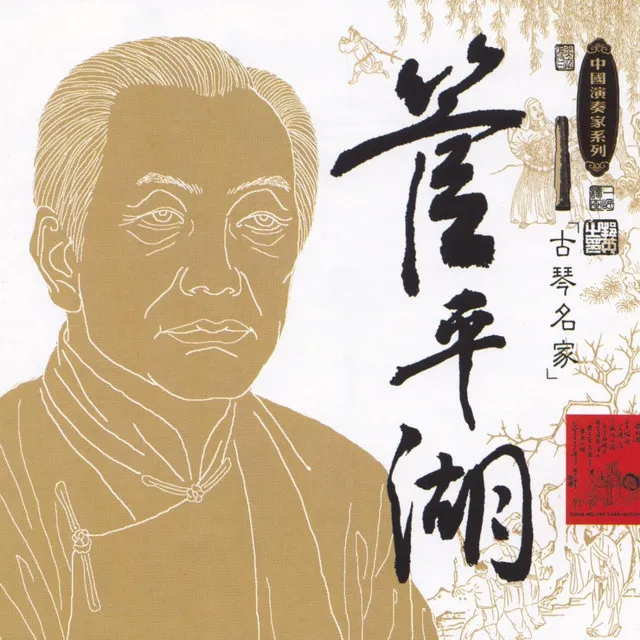 中國演奏家系列
管平湖
「古琴名家」
CHINA RECORD CORPORATION